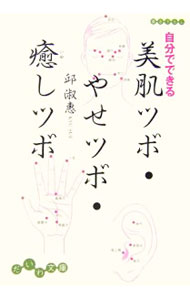 自分でできる
美肌ツボ・
やせツボ・
癒しツボ
邱淑惠
だいわ文庫